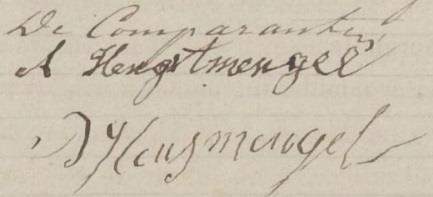 De Comparanten
A Hengstmengel
D Hengsmengel